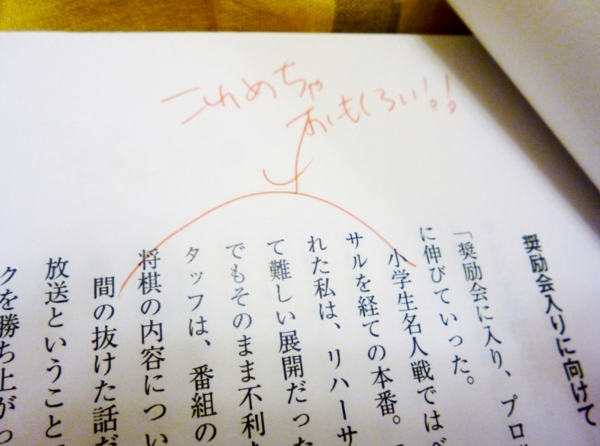 これめちゃ
おもしろい!!
奨励会入りに向けて
「奨励会に入り、プロ
に伸びていった。
小学生名人戦では、ベ
サルを経ての本番。
れた私は、リハーサ
て難しい展開だった
でもそのまま不利
タッフは、番組の
将棋の内容につい
間の抜けた話だ
放送ということ
クを勝ち上がっ